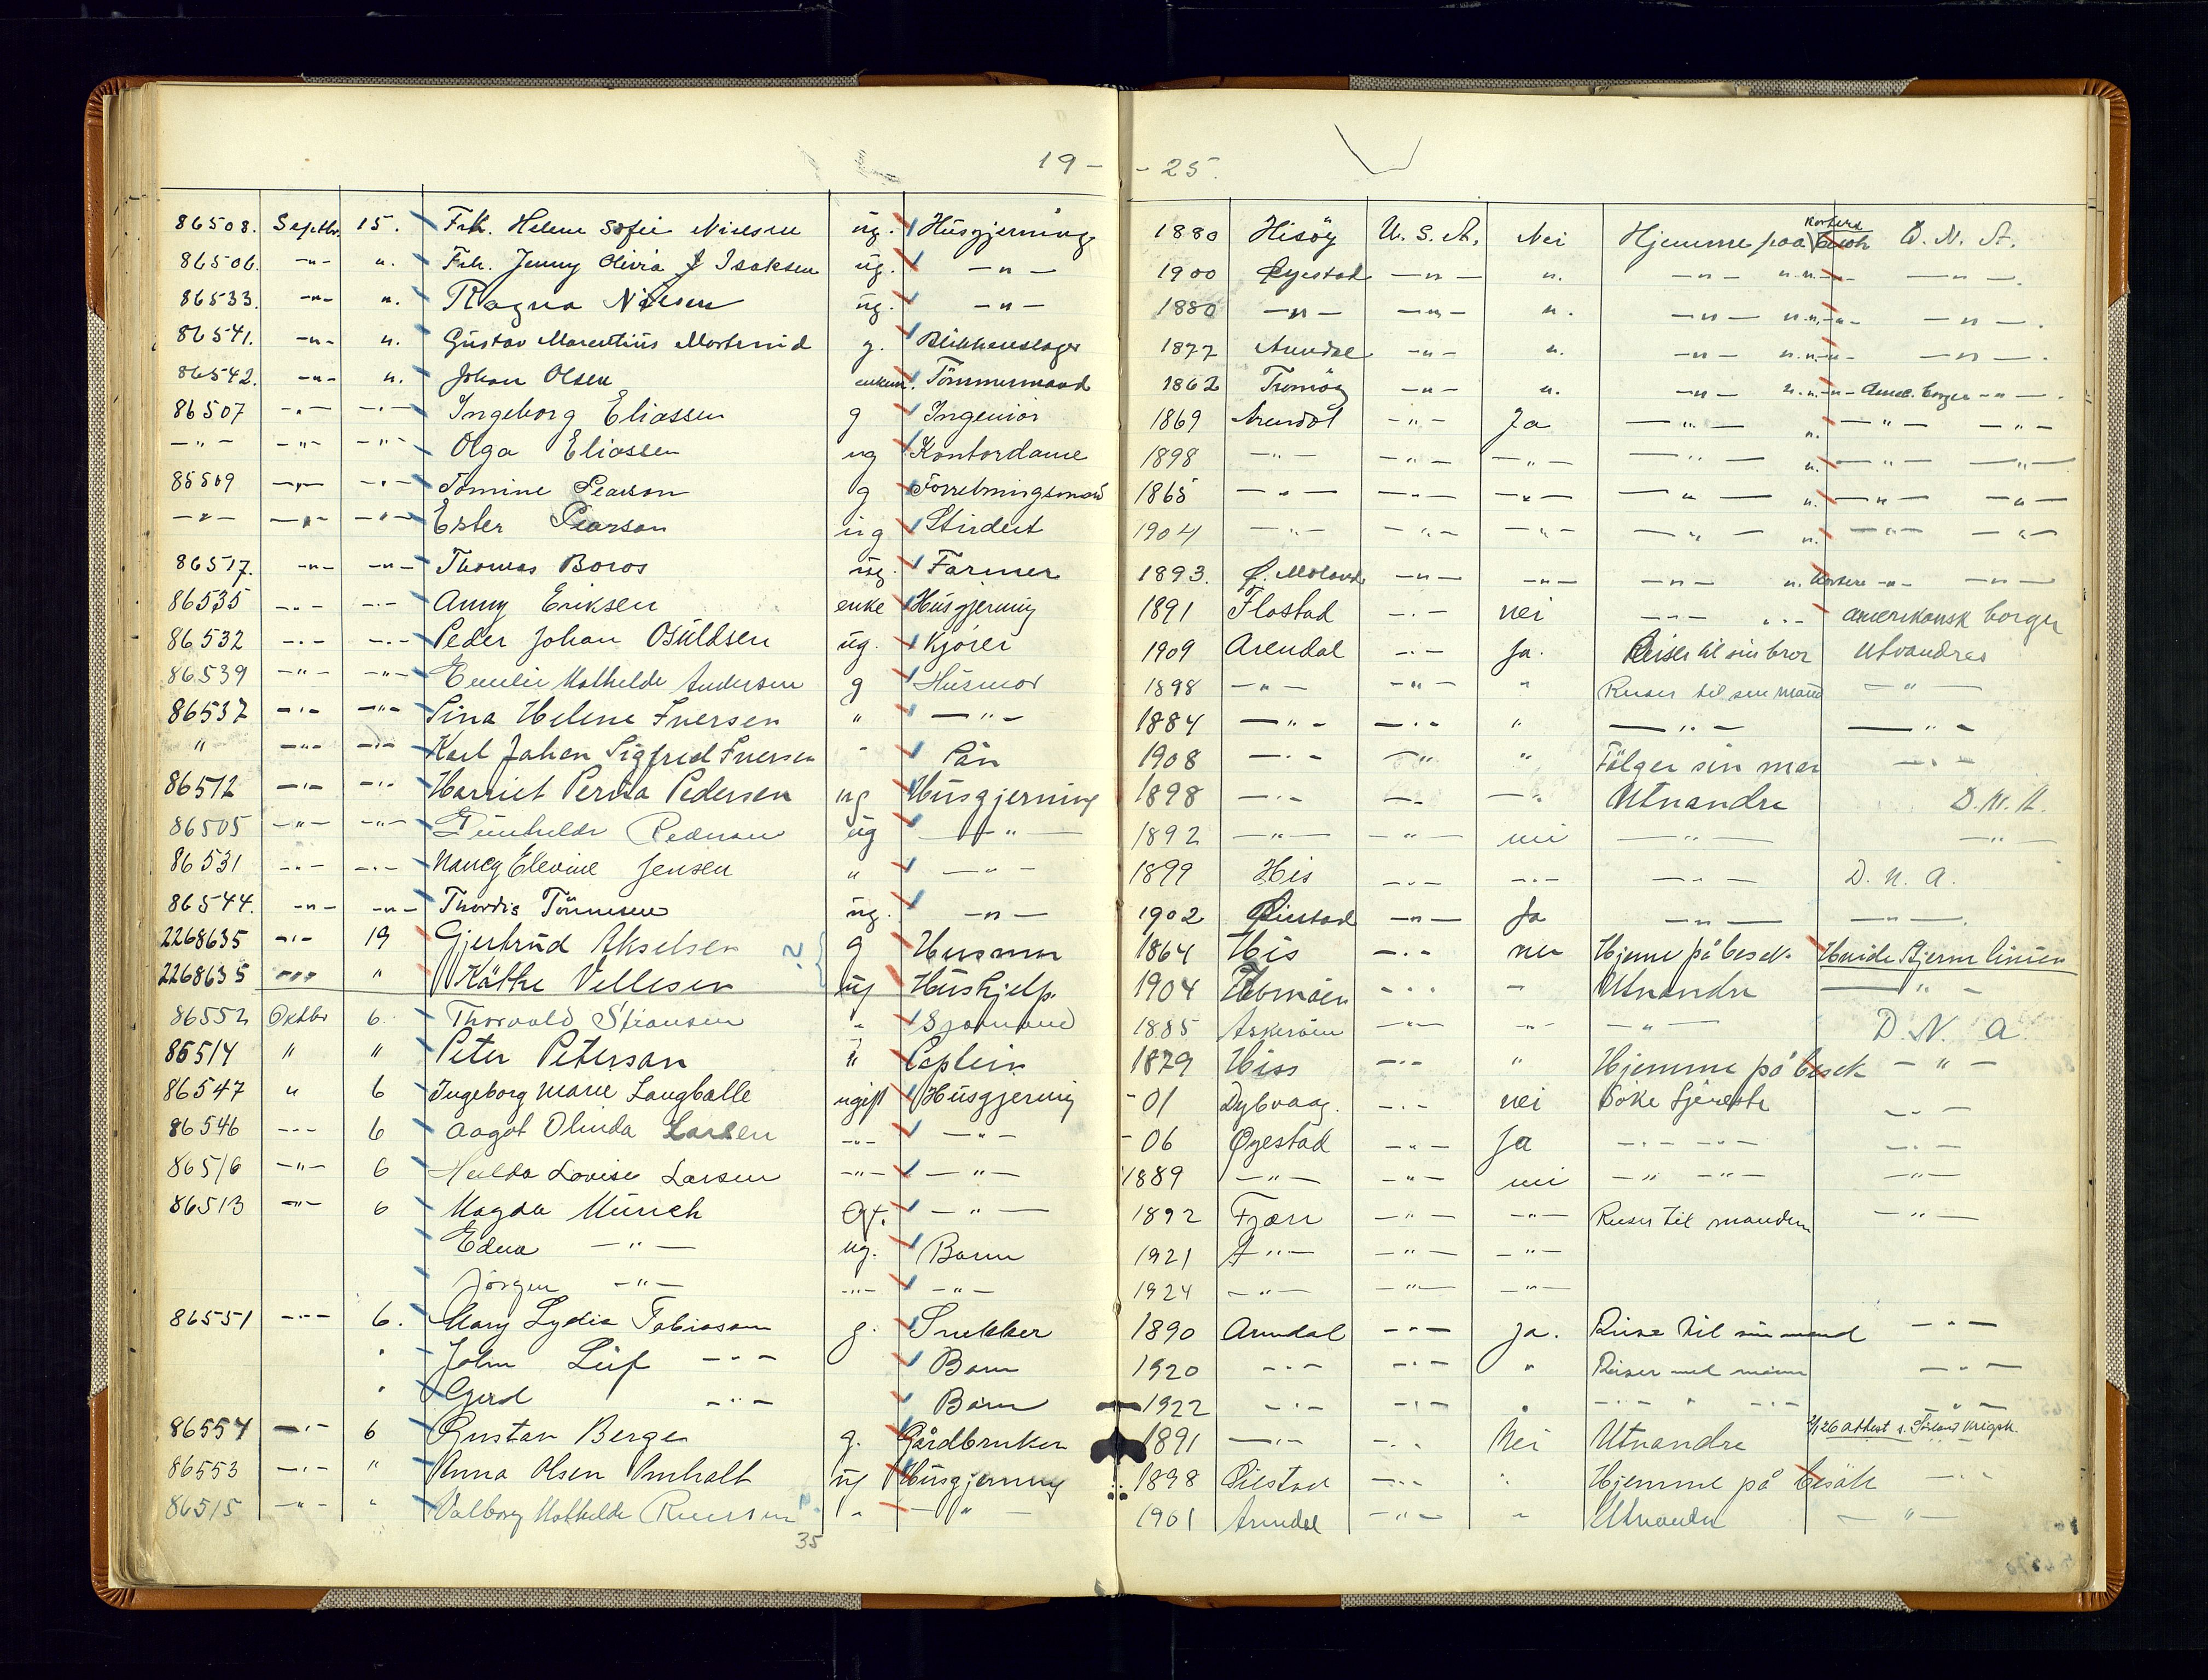 19 - - 25.
86508. Septbr. 15. Frk. Helene Sofie Nielsen ug. Husgjerning 1880 Hisöy U. S. A. Nei Hjemme paa besök Norsk D. N. A.
86506. -"- ". Frk. Jenny Olivia J Isaksen ug. -"- 1900 Öyestad -"- ". -"- ".". -"- -"-.
86533. -"- ". Ragna Nilsen ug. -"- 1880 -"- -"- ". -"- ".".-"- -"-.
86541. -"- ". Gustav Marentius g. Blikkenslager 1877 Arendal -"- ". -"- ".".-"- -"-.
86542. -"- ". Johan Olsen enkem. Tömmermand 1862 Tromöy -"- ". -"- ".".-"- Amr. borger -"-.
86507 -"- -"- Ingeborg Eliassen g Ingeniör 1869 Arendal -"- Ja -"- ". -"- -"-
-"- -"- -"- Olga Eliassen ug Kontordame 1898 -"- -"- -"- -"- ". -"- -"-
85509 -"- -"- Tomine Pearson g Forretningsmand 1865 -"- -"- -"- -"- ". -"- -"-
-"- -"- -"- Ester Pearson ug Student 1904 -"- -"- -"- -"- ". -"- -"-
86517. -"- -"- Thomas Boros ug. Farmer 1893. Ö. Moland -"- -"- -"- ". Norsk -"- -"-
86535 -"- -"- Anny Eriksen enke Husgjerning 1891 Flostad -"- nei -"- "- amerikansk borger
86532 -"- -"- Peder Johan Osuldsen ug. Kjörer 1909 Arendal -"- Ja. Reiser til sin bror Utvandrer
86539 -"- -"- Emilie Mathilde Andersen g Husmor 1898 -"- -"- " Reiser til sin mand -"-
86537 -"- -"- Sina Helene Iversen " -"- 1884 -"- -"- " -"- -"-
" -"- -"- Karl Johan Sigfred Iversen " Sön 1908 -"- -"- " Fölger sin mor -"-
86512 -"- -"- Harriet Perna Pedersen ug Husgjerning 1898 -"- -"- -"- Utvandre D. N. A.
86505 -"- -"- Gunhilde Pedersen ug -"- 1892 -"- -"- nei -"- -"-
86531 -"- -"- Nancy Elevine Jensen " -"- 1899 His -"- -"- -"- D. N. A.
86544. -"- -"- Thordis Tönnesen ug. -"- 1902 Öiestad -"- Ja -"- -"-.
2268635 -"- 19 Gjertrud Akselsen g Husmor 1864 His -"- nei Hjeme på besök. Hvide Stjerne linien
2268635 -"- " Käthe Vellesen ug Hushjelp. 1904 Tromöen -"- " Utvandre -"-
86552 Oktbr 6. Thorvald Stiansen " Sjömand 1885 Askeröen -"- -"- -"- D. N. A.
86514 " " Peter Peterson " Captein 1879 Hiss -"- " Hjemme på besök -"-
86547 " 6 Ingeborg Marie Langballe ugift Husgjerning -01 Dybvaag. -"- nei Söke tjeneste -"-
86546 -"- 6 Aagot Olinda Larsen -"- -"- -06 Öyestad -"- Ja -"- -"- -"-
86516 -"- 6 Hulda Lovise Larsen -"- -"- 1889 -"- -"- nei -"- -"- -"-
86513 -"- 6 Magda Münich Gf. -"- 1892 Fjære -"- -"- Reiser til manden -"-
Edna -"- ug. Barn 1921 A"- -"- -"-
Jörgen -"- -"- -"- 1924 -"- -"- -"-
86551 -"- 6. Mary Lydia Tobiassen g. Snekker 1890 Arendal -"- ja. Reise til sin mand -"-
" John Leif -"- Barn 1920 -"- -"- " Reiser med moren -"-
" Gerd -"- Barn 1922 -"- -"- " -"- " -"- -"-
86554 -"- 6 Gustav Berge g. Gårdbruker 1891 -"- -"- Nei Utvandre 2/1 26 attest
86553 -"- " Anna Olsen Omholt ug Husgjerning 1898 Öiestad -"- " Hjemme på besök -"-
86515 -"- " Valborg Mathilde " -"- 1901 Arendal -"- " Utvandre -"-
35